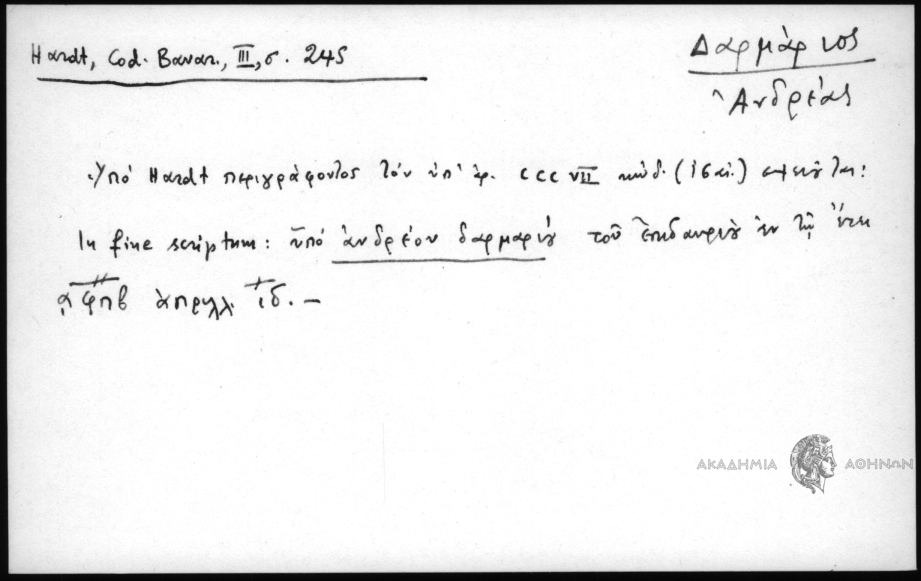 Hardt, Cod. Bavar., III, σ. 245
Δαρμάριος
Ἀνδρέας
Ὑπό Hardt περιγράφοντος τόν ὑπ' ἀρ. CCCVII κώδ. (ἰσαι.) σημειοῦται:
In fine scriptum: ὑπό ἀνδρέου δαρμαρίου τοῦ ἐπιδαυρίου ἐν τῷ ἔτει
α φπβ ἀπριλλ. ιδ. –
ΑΚΑΔΗΜΙΑ ΑΘΗΝΩΝ